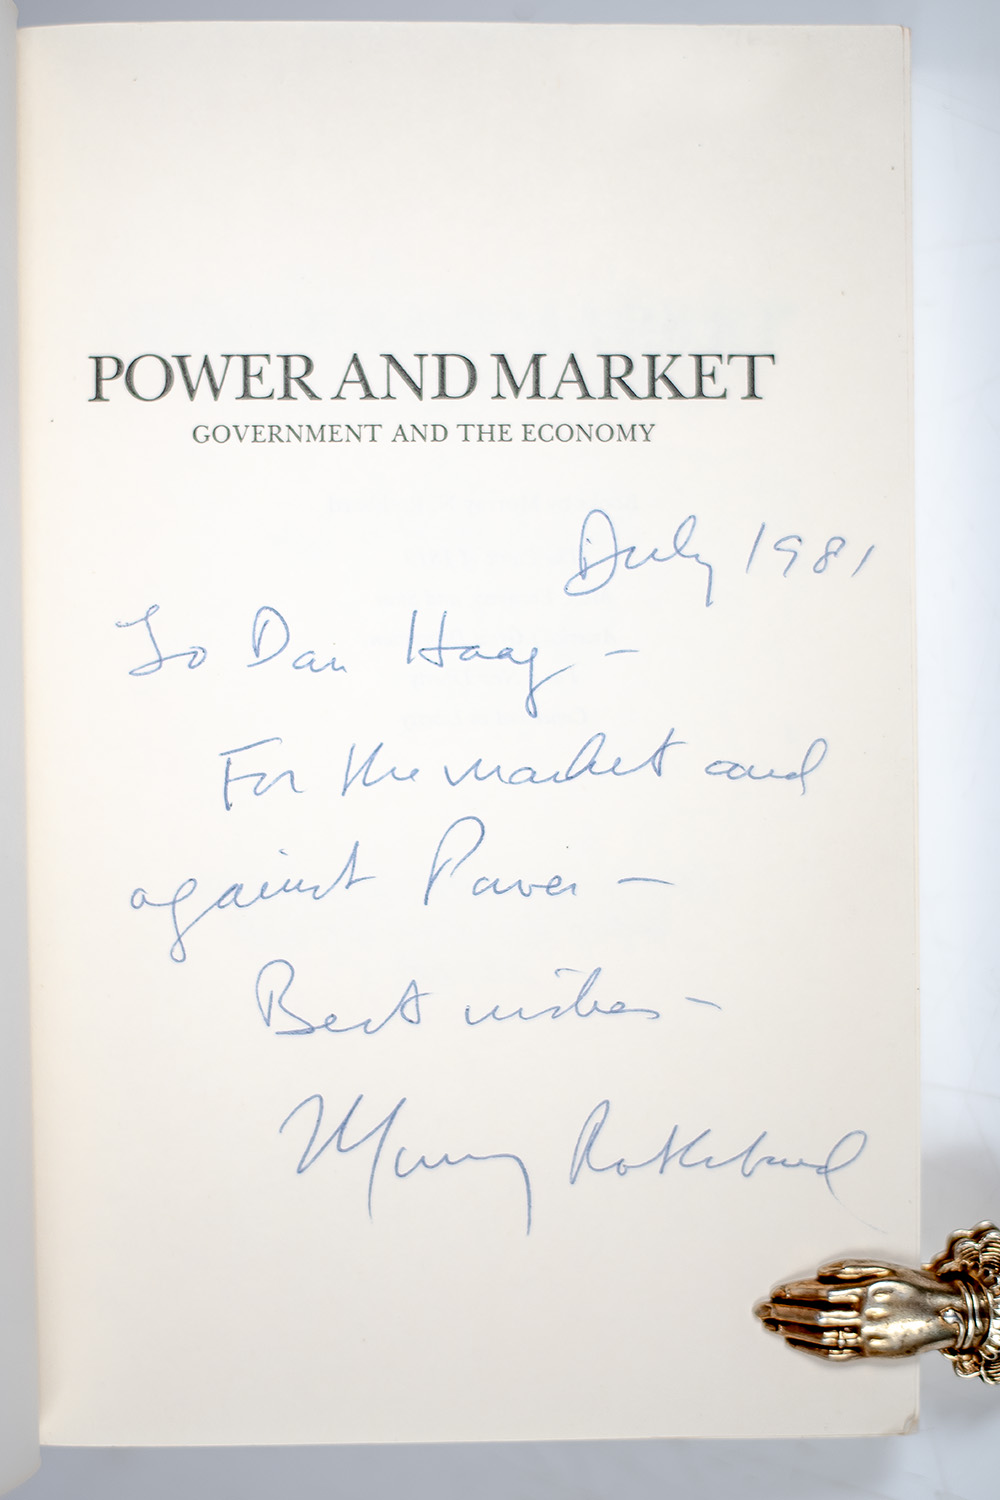 POWER AND MARKET
GOVERNMENT AND THE ECONOMY
July 1981
To Dan Haag –
For the market and
against Power –
Best wishes –
Murray Rothbard